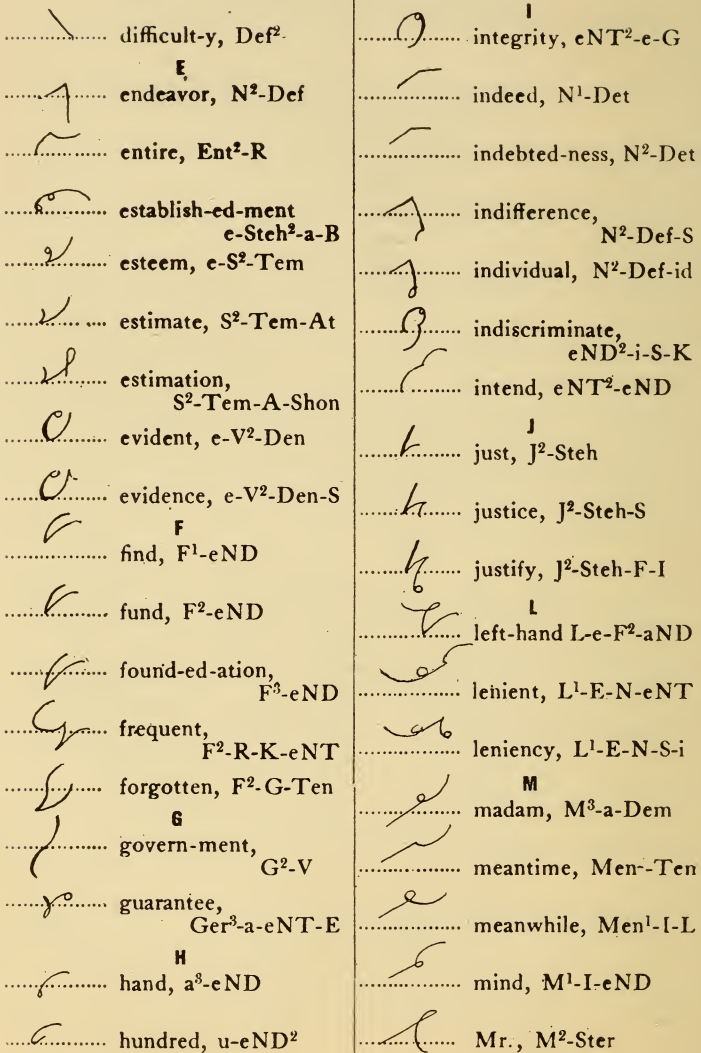 difficult-y, Def²
E
endeavor, N²-Def
entire, Ent²-R
establish-ed-ment
e-Steh²-a-B
esteem, e-S²-Tem
estimate, S²-Tem-At
estimation,
S²-Tem-A-Shon
evident, e-V²-Den
evidence, e-V²-Den-S
F
find, F¹-eND
fund, F²-eND
found-ed-ation,
F³-eND
frequent,
F²-R-K-eNT
forgotten, F²-G-Ten
G
govern-ment,
G²-V
guarantee,
Ger³-a-eNT-E
H
hand, a³-eND
hundred, u-eND²
I
integrity, eNT²-e-G
indeed, N¹-Det
indebted-ness, N²-Det
indifference,
N²-Def-S
individual, N²-Def-id
indiscriminate,
eND²-i-S-K
intend, eNT²-eND
J
just, J²-Steh
justice, J²-Steh-S
justify, J²-Steh-F-I
L
left-hand L-e-F²-aND
lenient, L¹-E-N-eNT
leniency, L¹-E-N-S-i
M
madam, M³-a-Dem
meantime, Men--Ten
meanwhile, Men¹-I-L
mind, M¹-I-eND
Mr., M²-Ster